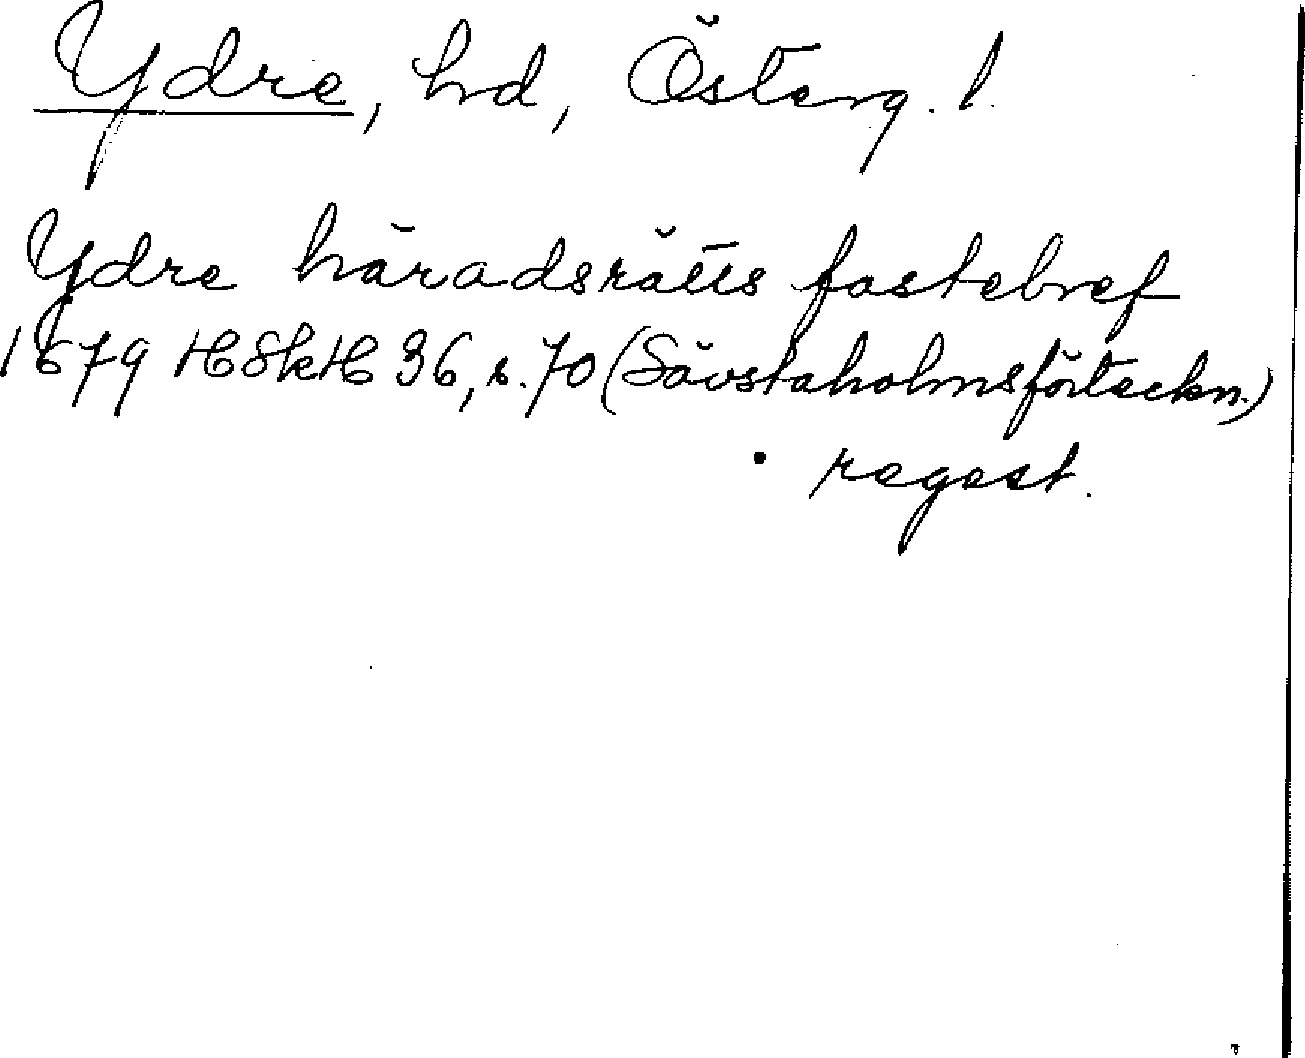 Ydre, hd, Österg. l.
Ydre häradsrätts fastebref
1679 HSkH 36, s. 70 (Sävstaholmsförteckn.)
regest.